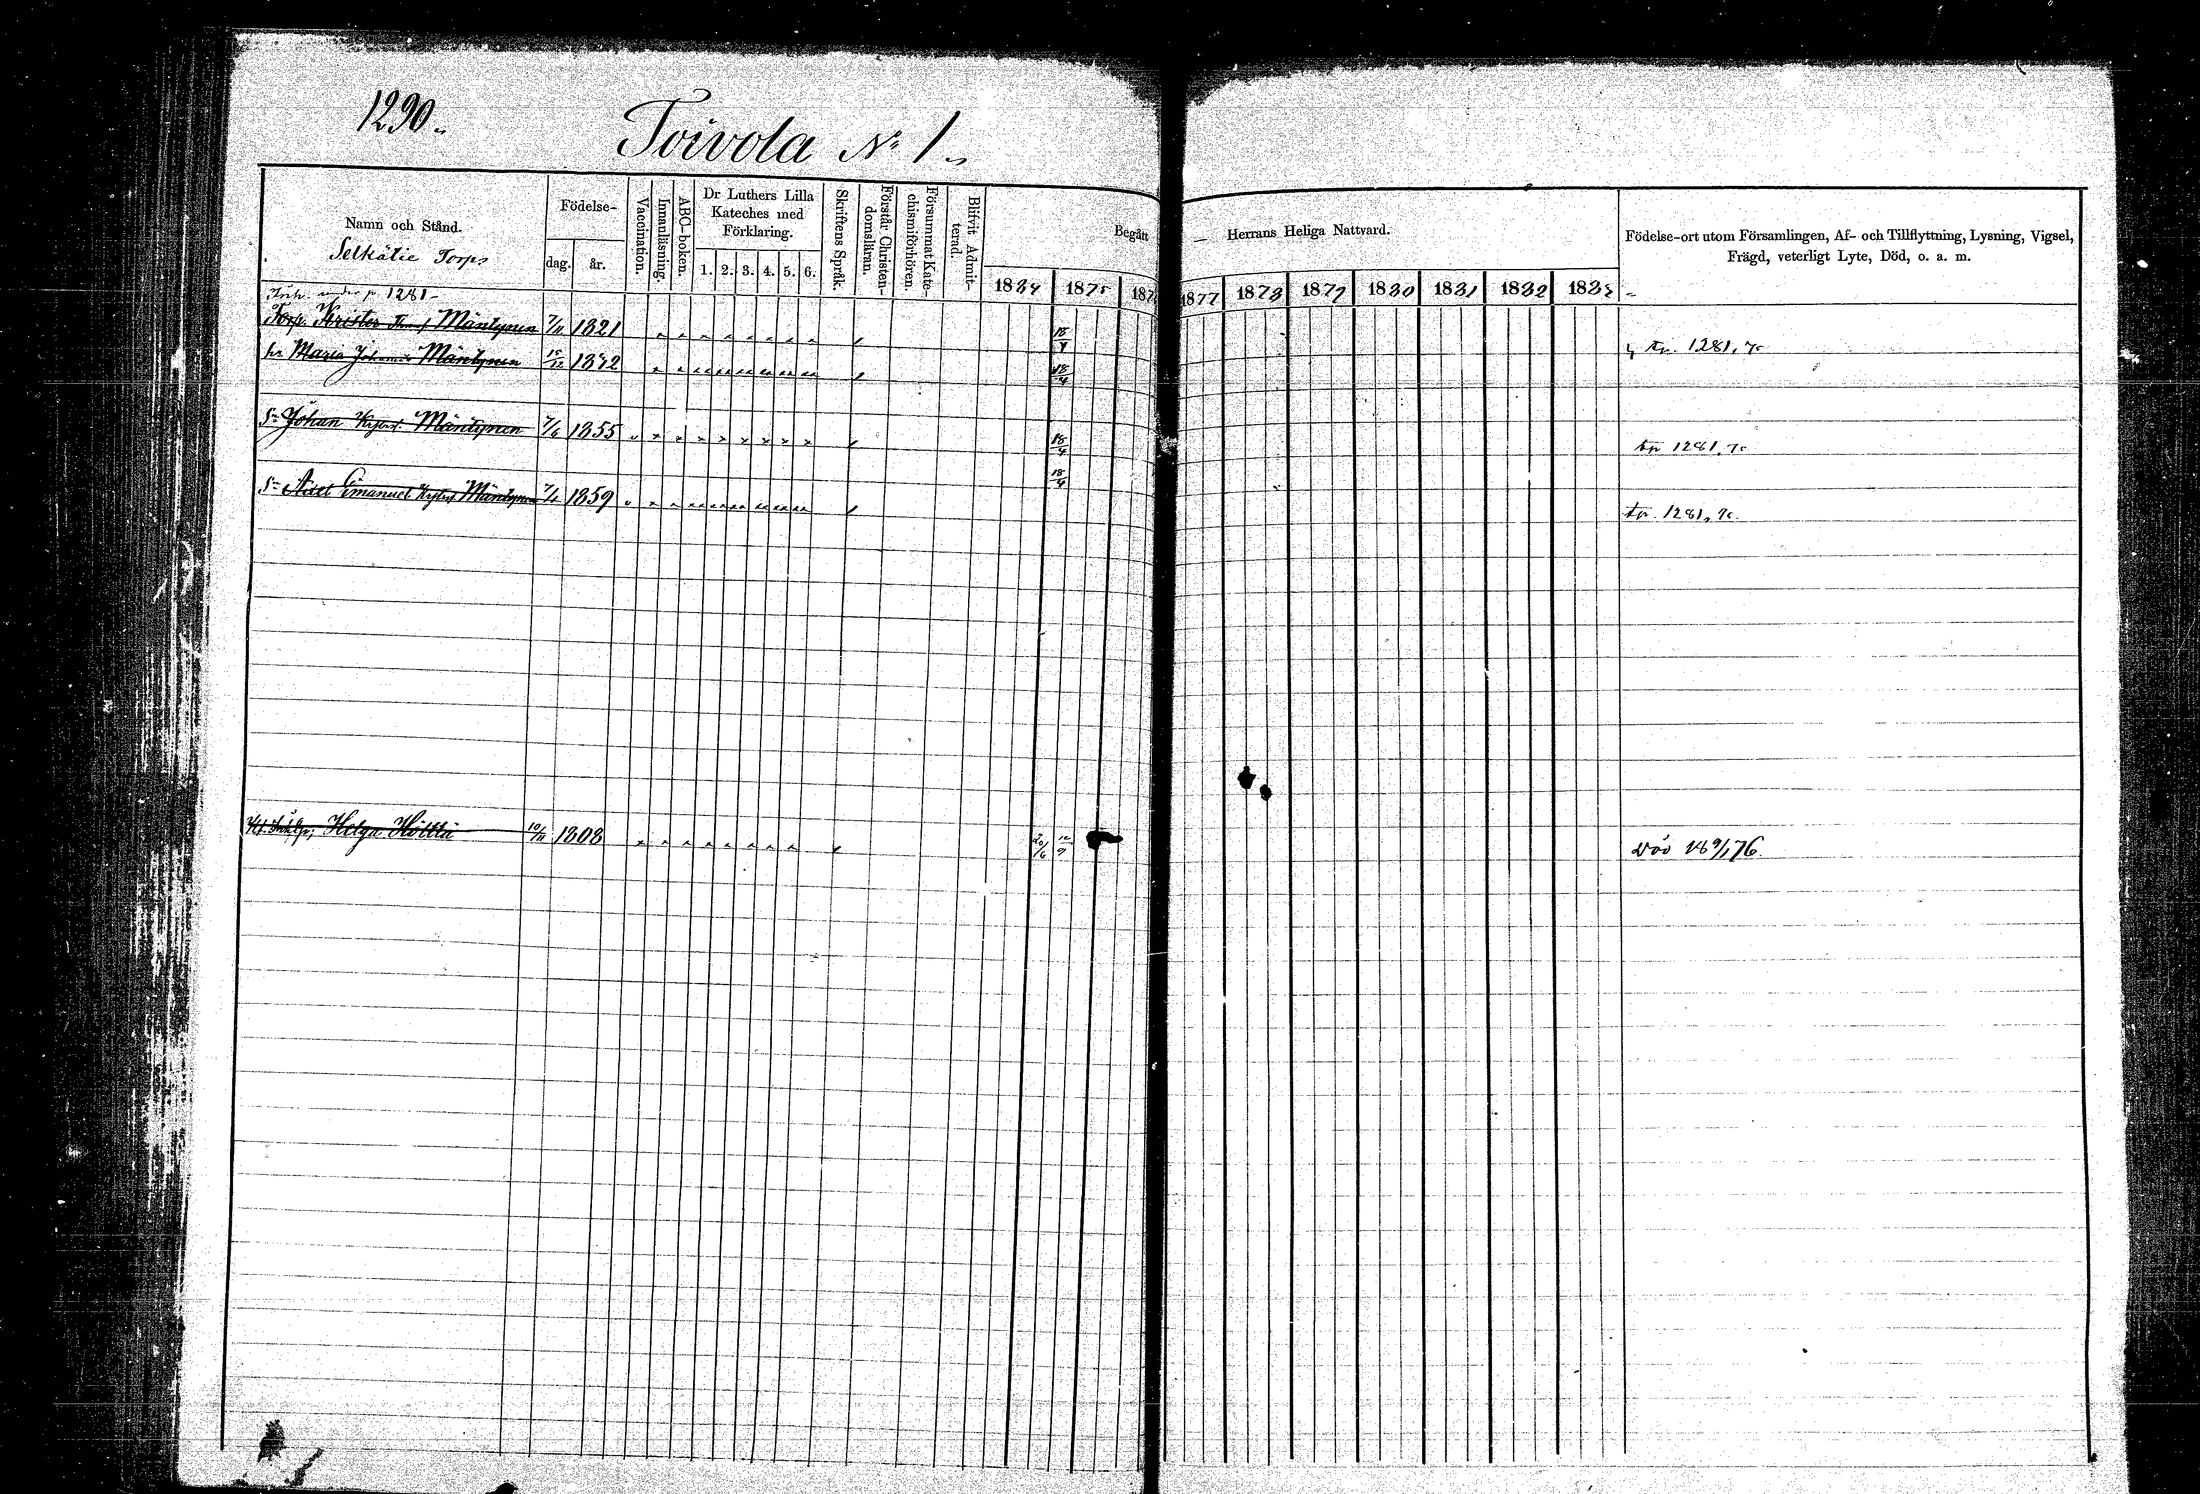 1290.
Toivola No 1.
Namn och Stånd.
Selkätie Torp
Födelse-
dag.
år.
Vaccination.
Innanläsning.
ABC-boken.
Dr Luthers Lilla
Kateches med
Förklaring.
1. 2. 3. 4. 5. 6.
Skriftens Språk.
Förstår Christen-
domsläran.
Försummat Kate-
chismiförhören.
Blifvit Admit-
terad.
Begått
Herrans Heliga Nattvard.
1874 1875 187
1877 1878 1879 1880 1881 1882 1883
Födelse-ort utom Församlingen, Af- och Tillflyttning, Lysning, Vigsel,
Frägd, veterligt Lyte, Död, o. a. m.
under p. 1281
Torp. Krister Mäntynen 7/11 1821 18/4 tr. 1281, 75
hu Maria Mäntynen 15/12 18/4
Sn Johan Mäntynen 7/6 1855 18/4 tr 1281, 75
Sn Emanuel Mäntynen 1859 18/4 tr. 1281, 75.
Helga Hölttä 10/11 1808 20/6 död 76